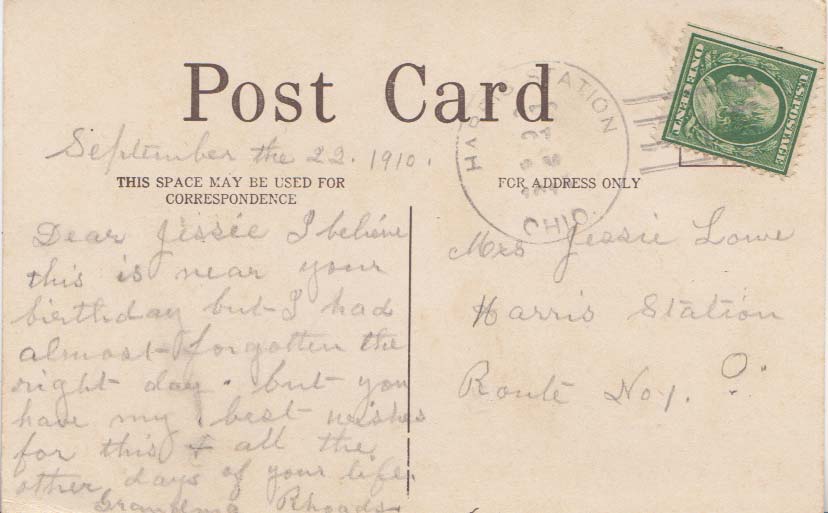 Post Card
September the 22. 1910.
THIS SPACE MAY BE USED FOR
CORRESPONDENCE
Dear Jissée I believe
this is near your
birthday but I had
almost forgotten the
right day. but you
have my best wishes
for this & all the
other days of your life.
Grandma Rhoads
STATION
OHIO.
U.S. POSTAGE
ONE CENT
FOR ADDRESS ONLY
Mrs Jessie Lowe
Harris Station
Route No 1. O.